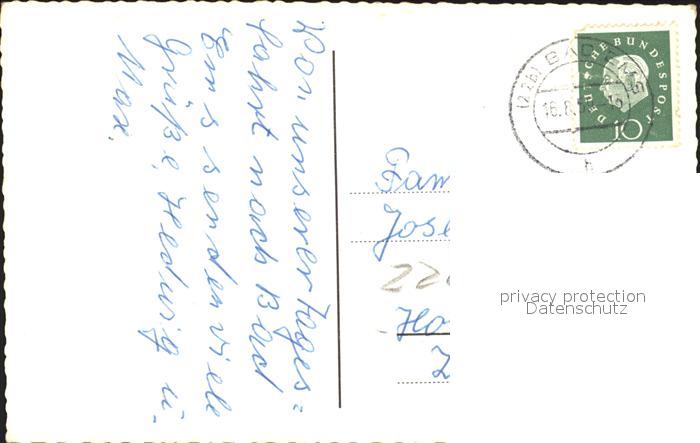 Von unserer Tages=
fahrt nach Bad
Ems senden viele
Grüße, Hedwig u.
Max.
Fam
Jose
22
Ho
DEUTSCHE BUNDESPOST
10
(22b) BAD EMS
16.8.
h
privacy protection
Datenschutz